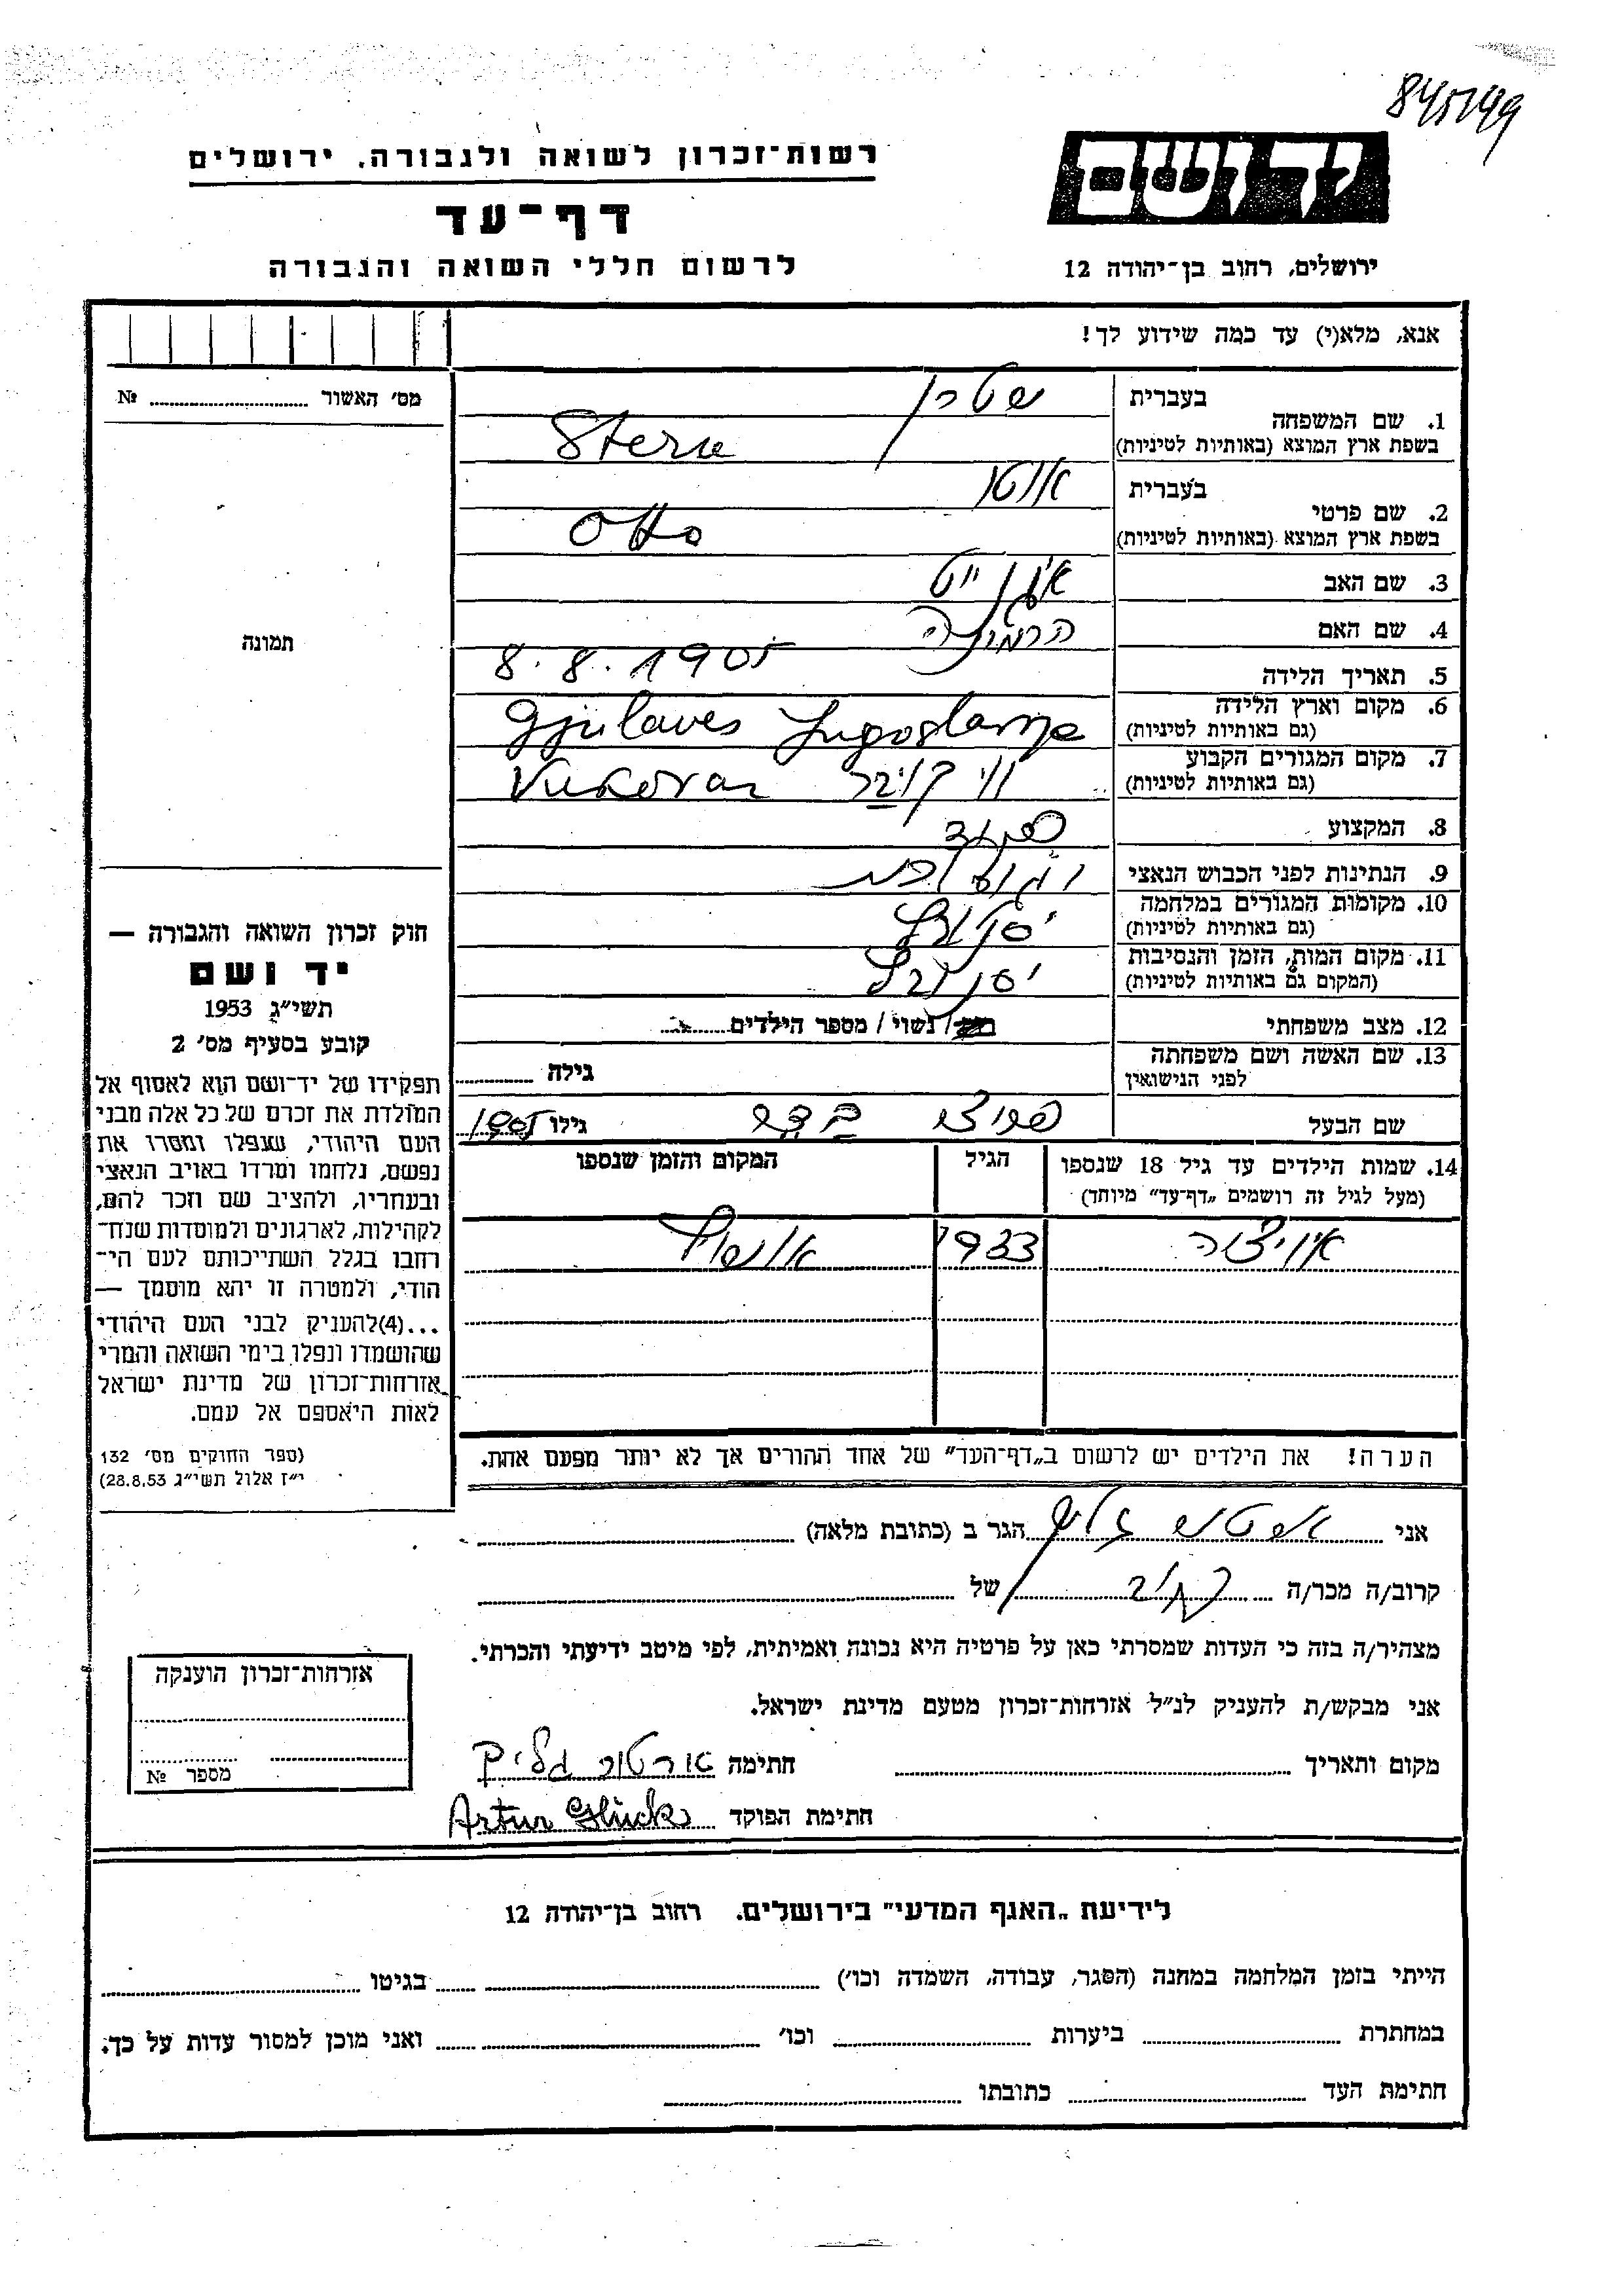 845/99
רשות־זכרון לשואה ולגבורה, ירושלים
יד ושם
דף־עד
לרשום חללי השואה והגבורה
ירושלים, רחוב בן־יהודה 12
אנא, מלא(י) עד כמה שידוע לך!
מס׳ האשור № 
1. שם המשפחה
בעברית שטרן
בשפת ארץ המוצא (באותיות לטיניות) Stern
2. שם פרטי
בעברית אוטו
בשפת ארץ המוצא (באותיות לטיניות) Otto
3. שם האב
4. שם האם הרמינה
5. תאריך הלידה 8.8.1905
6. מקום וארץ הלידה
(גם באותיות לטיניות) Gjulaves Jugoslavija
7. מקום המגורים הקבוע
(גם באותיות לטיניות) ווקובר Vukovar
8. המקצוע
9. הנתינות לפני הכבוש הנאצי
10. מקומות המגורים במלחמה
(גם באותיות לטיניות)
11. מקום המות, הזמן והנסיבות
(המקום גם באותיות לטיניות)
12. מצב משפחתי / נשוי / מספר הילדים
13. שם האשה ושם משפחתה
לפני הנישואין
גילה
שם הבעל
גילו 1905
14. שמות הילדים עד גיל 18 שנספו
(מעל לגיל זה רושמים „דף־עד״ מיוחד)
הגיל
המקום והזמן שנספו
איויצה 1933
הערה! את הילדים יש לרשום ב„דף־העד״ של אחד ההורים אך לא יותר מפעם אחת.
תמונה
חוק זכרון השואה והגבורה —
יד ושם
תשי״ג 1953
קובע בסעיף מס׳ 2
תפקידו של יד־ושם הוא לאסוף אל
המולדת את זכרם של כל אלה מבני
העם היהודי, שנפלו ומסרו את
נפשם, נלחמו ומרדו באויב הנאצי
ובעוזריו, ולהציב שם וזכר להם,
לקהילות, לארגונים ולמוסדות שנח־
רבו בגלל השתייכותם לעם הי־
הודי, ולמטרה זו יהא מוסמך —
...(4)להעניק לבני העם היהודי
שהושמדו ונפלו בימי השואה והמרי
אזרחות־זכרון של מדינת ישראל
לאות היאספם אל עמם.
(ספר החוקים מס׳ 132
י״ז אלול תשי״ג 28.8.53)
אני הגר ב (כתובת מלאה)
קרוב/ה מכר/ה של
מצהיר/ה בזה כי העדות שמסרתי כאן על פרטיה היא נכונה ואמיתית, לפי מיטב ידיעתי והכרתי.
אני מבקש/ת להעניק לנ״ל אזרחות־זכרון מטעם מדינת ישראל.
מקום ותאריך חתימה ארטור גליק
חתימת הפוקד Artur Glück
אזרחות־זכרון הוענקה
מספר №
לידיעת „האגף המדעי״ בירושלים. רחוב בן־יהודה 12
הייתי בזמן המלחמה במחנה (הסגר, עבודה, השמדה וכו׳) בגיטו
במחתרת ביערות וכו׳ ואני מוכן למסור עדות על כך.
חתימת העד כתובתו